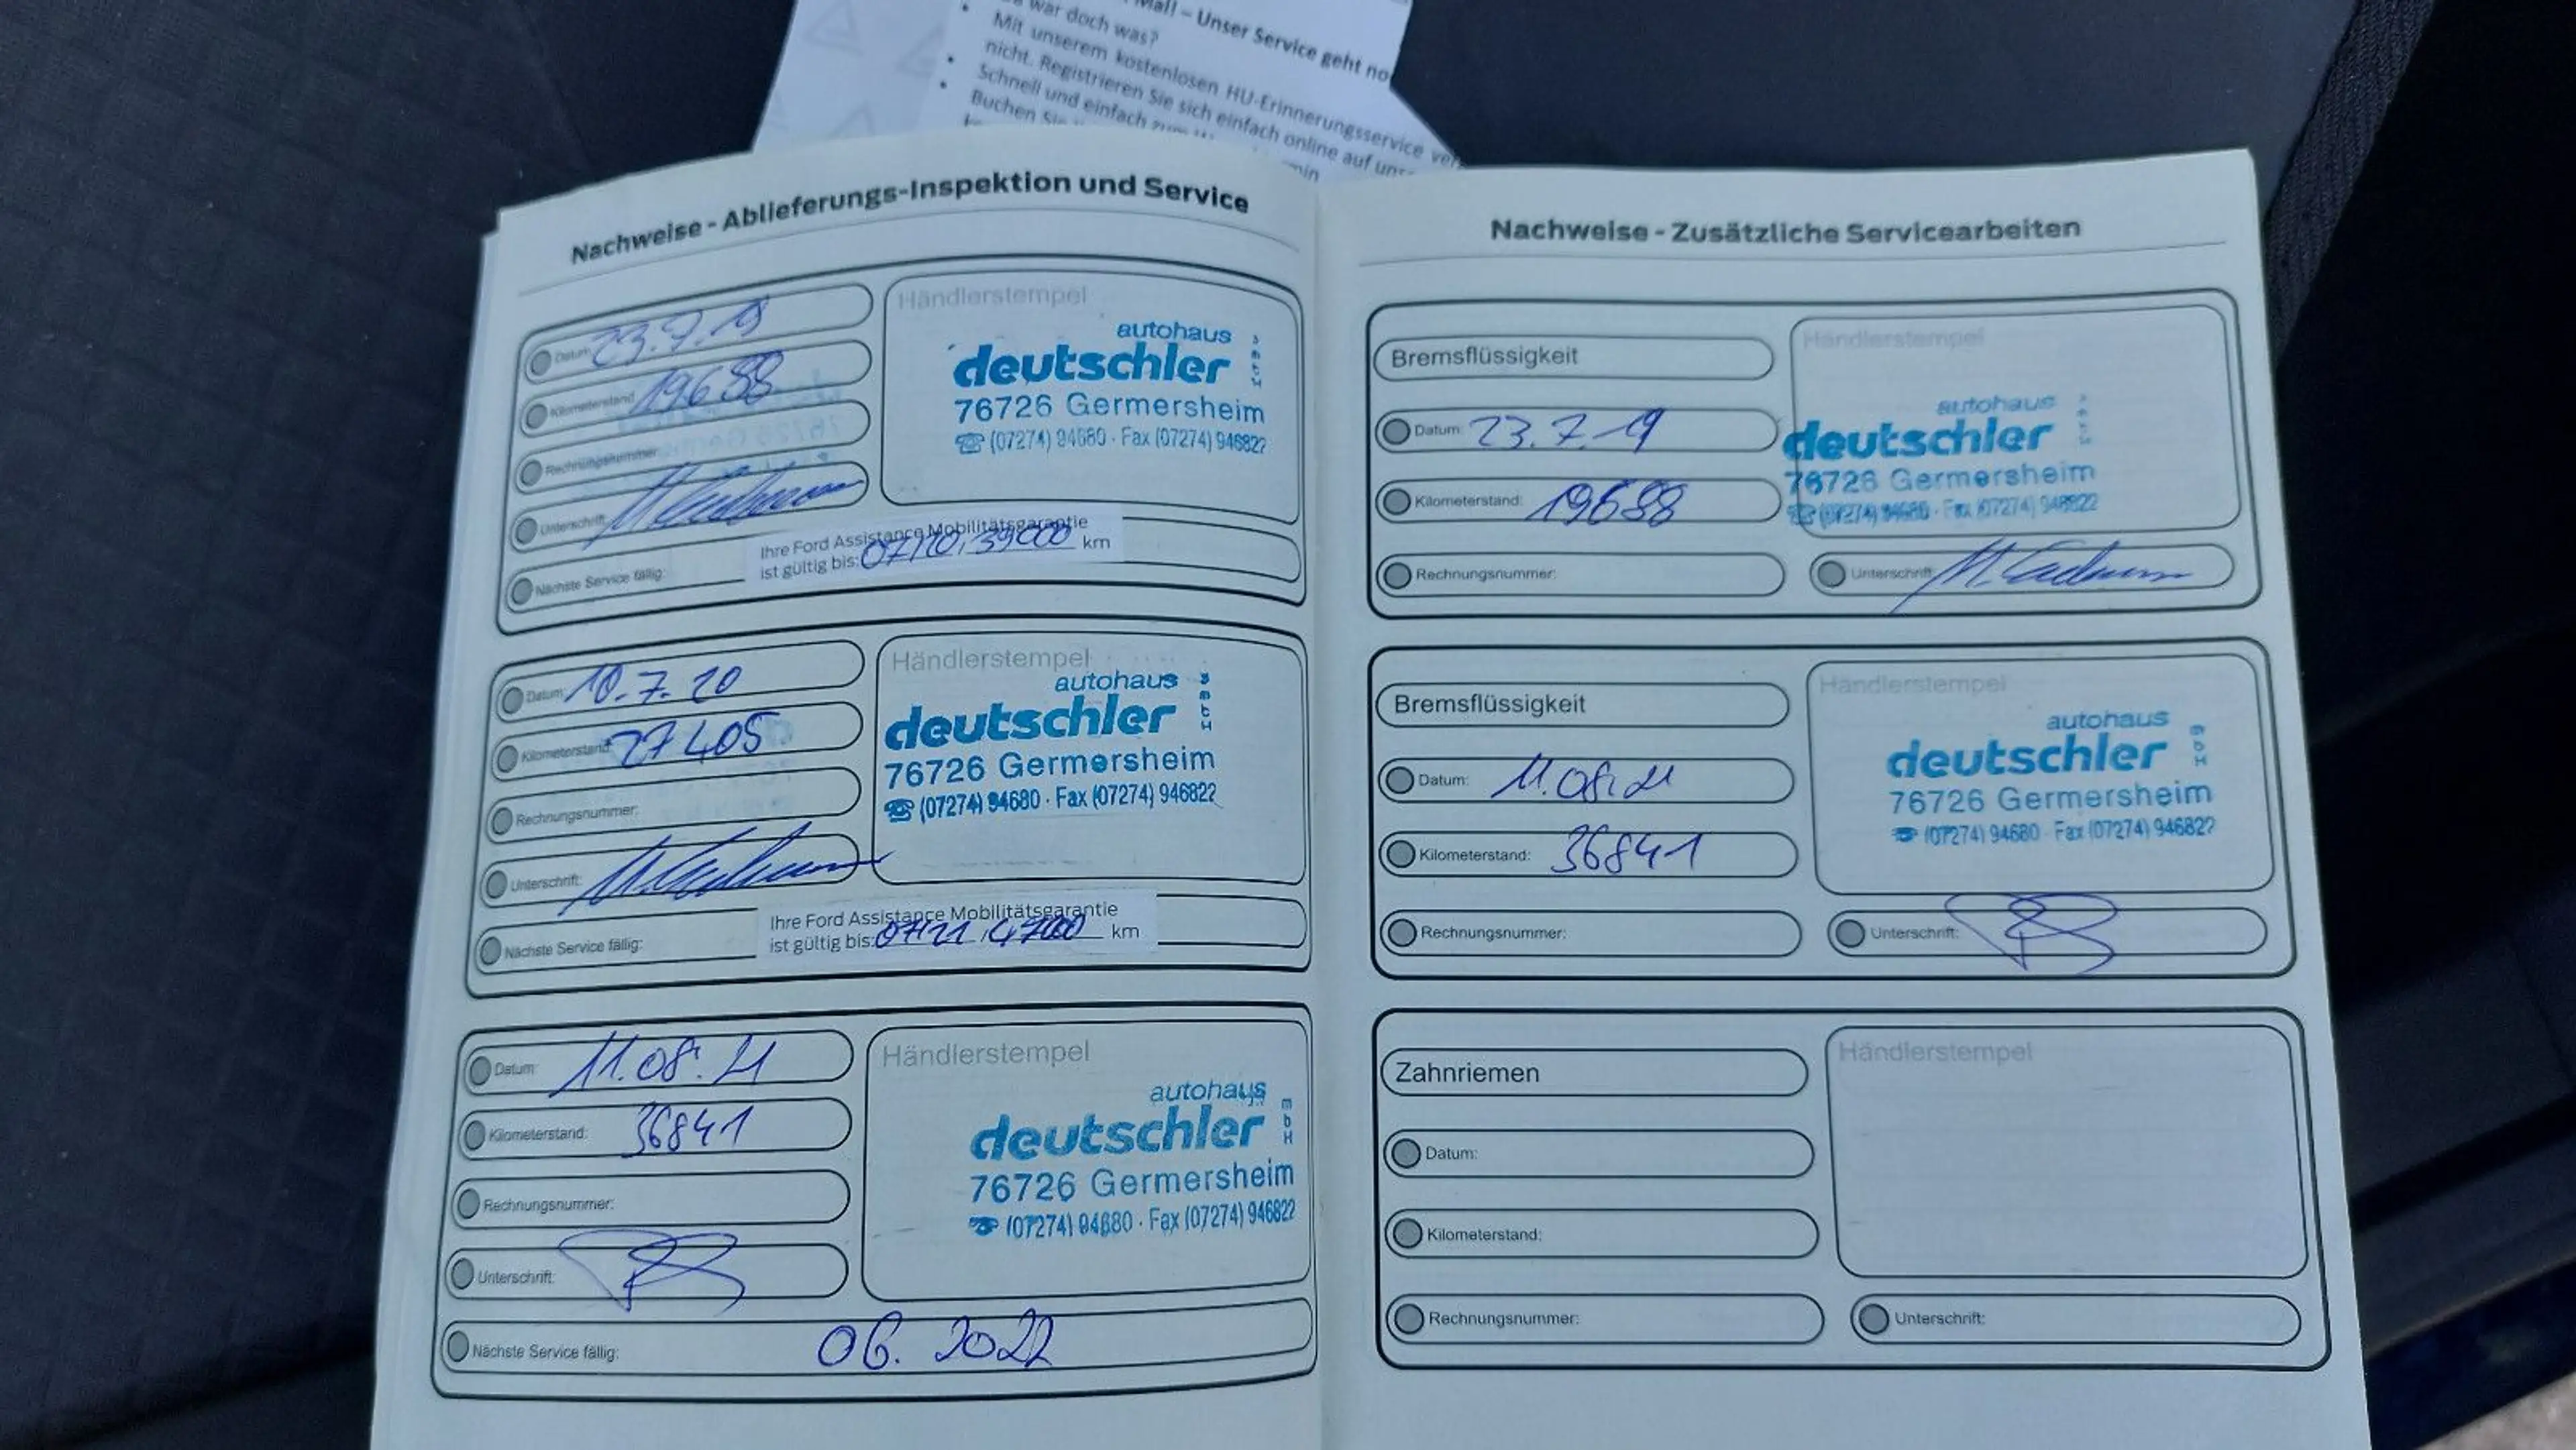 Mail – Unser Service geht no
war doch was?
Mit unserem kostenlosen HU-Erinnerungsservice ver
nicht. Registrieren Sie sich einfach online auf uns
Schnell und einfach zum
Buchen Sie
Nachweise - Ablieferungs-Inspektion und Service
Datum: 23.7.19
Kilometerstand: 19688
Rechnungsnummer:
Unterschrift:
Händlerstempel
autohaus
deutschler
76726 Germersheim
☎ (07274) 94680 · Fax (07274) 946822
Ihre Ford Assistance Mobilitätsgarantie
ist gültig bis: 07/20, 39000 km
Nächste Service fällig:
Datum: 10.7.20
Kilometerstand: 27405
Rechnungsnummer:
Unterschrift:
Händlerstempel
autohaus
deutschler
76726 Germersheim
☎ (07274) 94680 · Fax (07274) 946822
Ihre Ford Assistance Mobilitätsgarantie
ist gültig bis: 07/21, 47000 km
Nächste Service fällig:
Datum: 11.08.21
Kilometerstand: 36841
Rechnungsnummer:
Unterschrift:
Händlerstempel
autohaus
deutschler
mbH
76726 Germersheim
☎ (07274) 94680 · Fax (07274) 946822
Nächste Service fällig: 06. 2022
Nachweise - Zusätzliche Servicearbeiten
Bremsflüssigkeit
Datum: 23.7.19
Kilometerstand: 19688
Rechnungsnummer:
Händlerstempel
autohaus
deutschler
76726 Germersheim
☎ (07274) 94680 · Fax (07274) 946822
Unterschrift:
Bremsflüssigkeit
Datum: 11.08.21
Kilometerstand: 36841
Rechnungsnummer:
Händlerstempel
autohaus
deutschler
mbH
76726 Germersheim
☎ (07274) 94680 · Fax (07274) 946822
Unterschrift:
Zahnriemen
Datum:
Kilometerstand:
Rechnungsnummer:
Händlerstempel
Unterschrift: